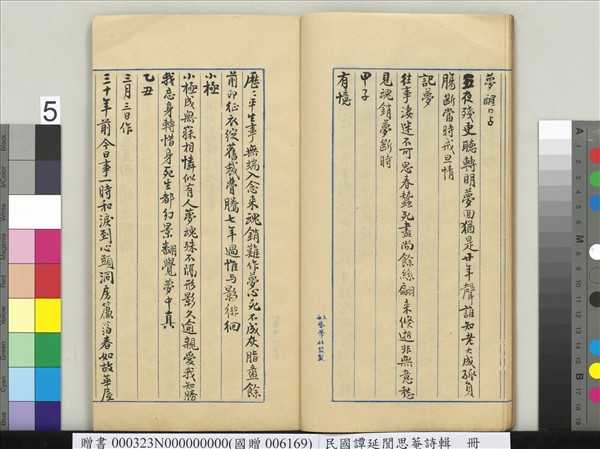 夢醒口占
五夜殘更聽轉明夢回猶是廿年聲誰知老大成孤負
腸斷當時戒旦情
記夢
往事淒迷不可思春蠶死盡尚餘絲翩來倏逝非無意愁
見魂銷夢斷時
甲子
有憶
歷歷平生事無端入念來魂銷難作夢心死不成灰脂盝餘
前印征衣綻舊裁瞢騰七年過惟與影徘徊
小極
小極成無寐相憐似有人夢魂殊不隔形影久逾親愛我知勝
我忘身轉惜身死生都幻景翻覺夢中真
乙丑
三月三日作
三十年前今日事一時和淚到心頭洞房簾箔春如故華屋
5
贈書 000323N000000000(國贈 006169) 民國譚延闓思菴詩輯 冊